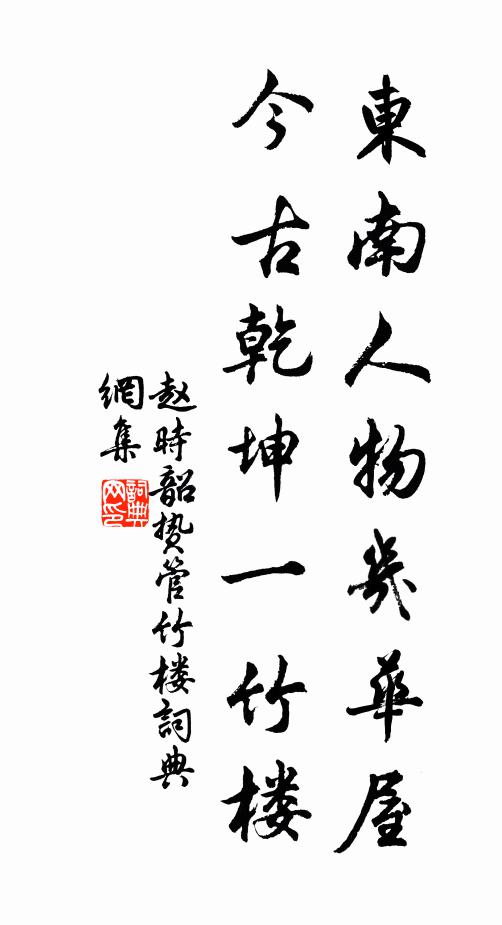 東南人物幾華屋
今古乾坤一竹楼
赵時韶贽管竹楼詞典
網集
詞典
网印